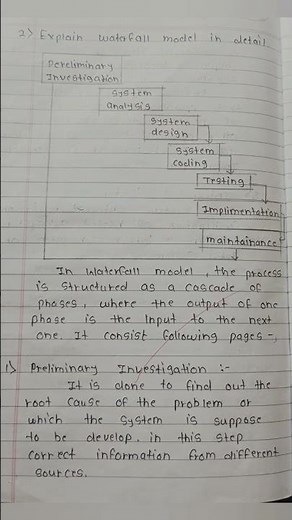 2) Explain waterfall model in detail.
Pereliminary
Investigation
System
analysis
System
design
System
coding
Testing
Implimentation
maintainance
In Waterfall model, the process
is structured as a cascade of
phases, where the output of one
phase is the input to the next
one. It consist following pages -,
1) Preliminary Investigation :-
It is done to find out the
root cause of the problem or
which the system is suppose
to be develop. in this step
correct information from different
sources.